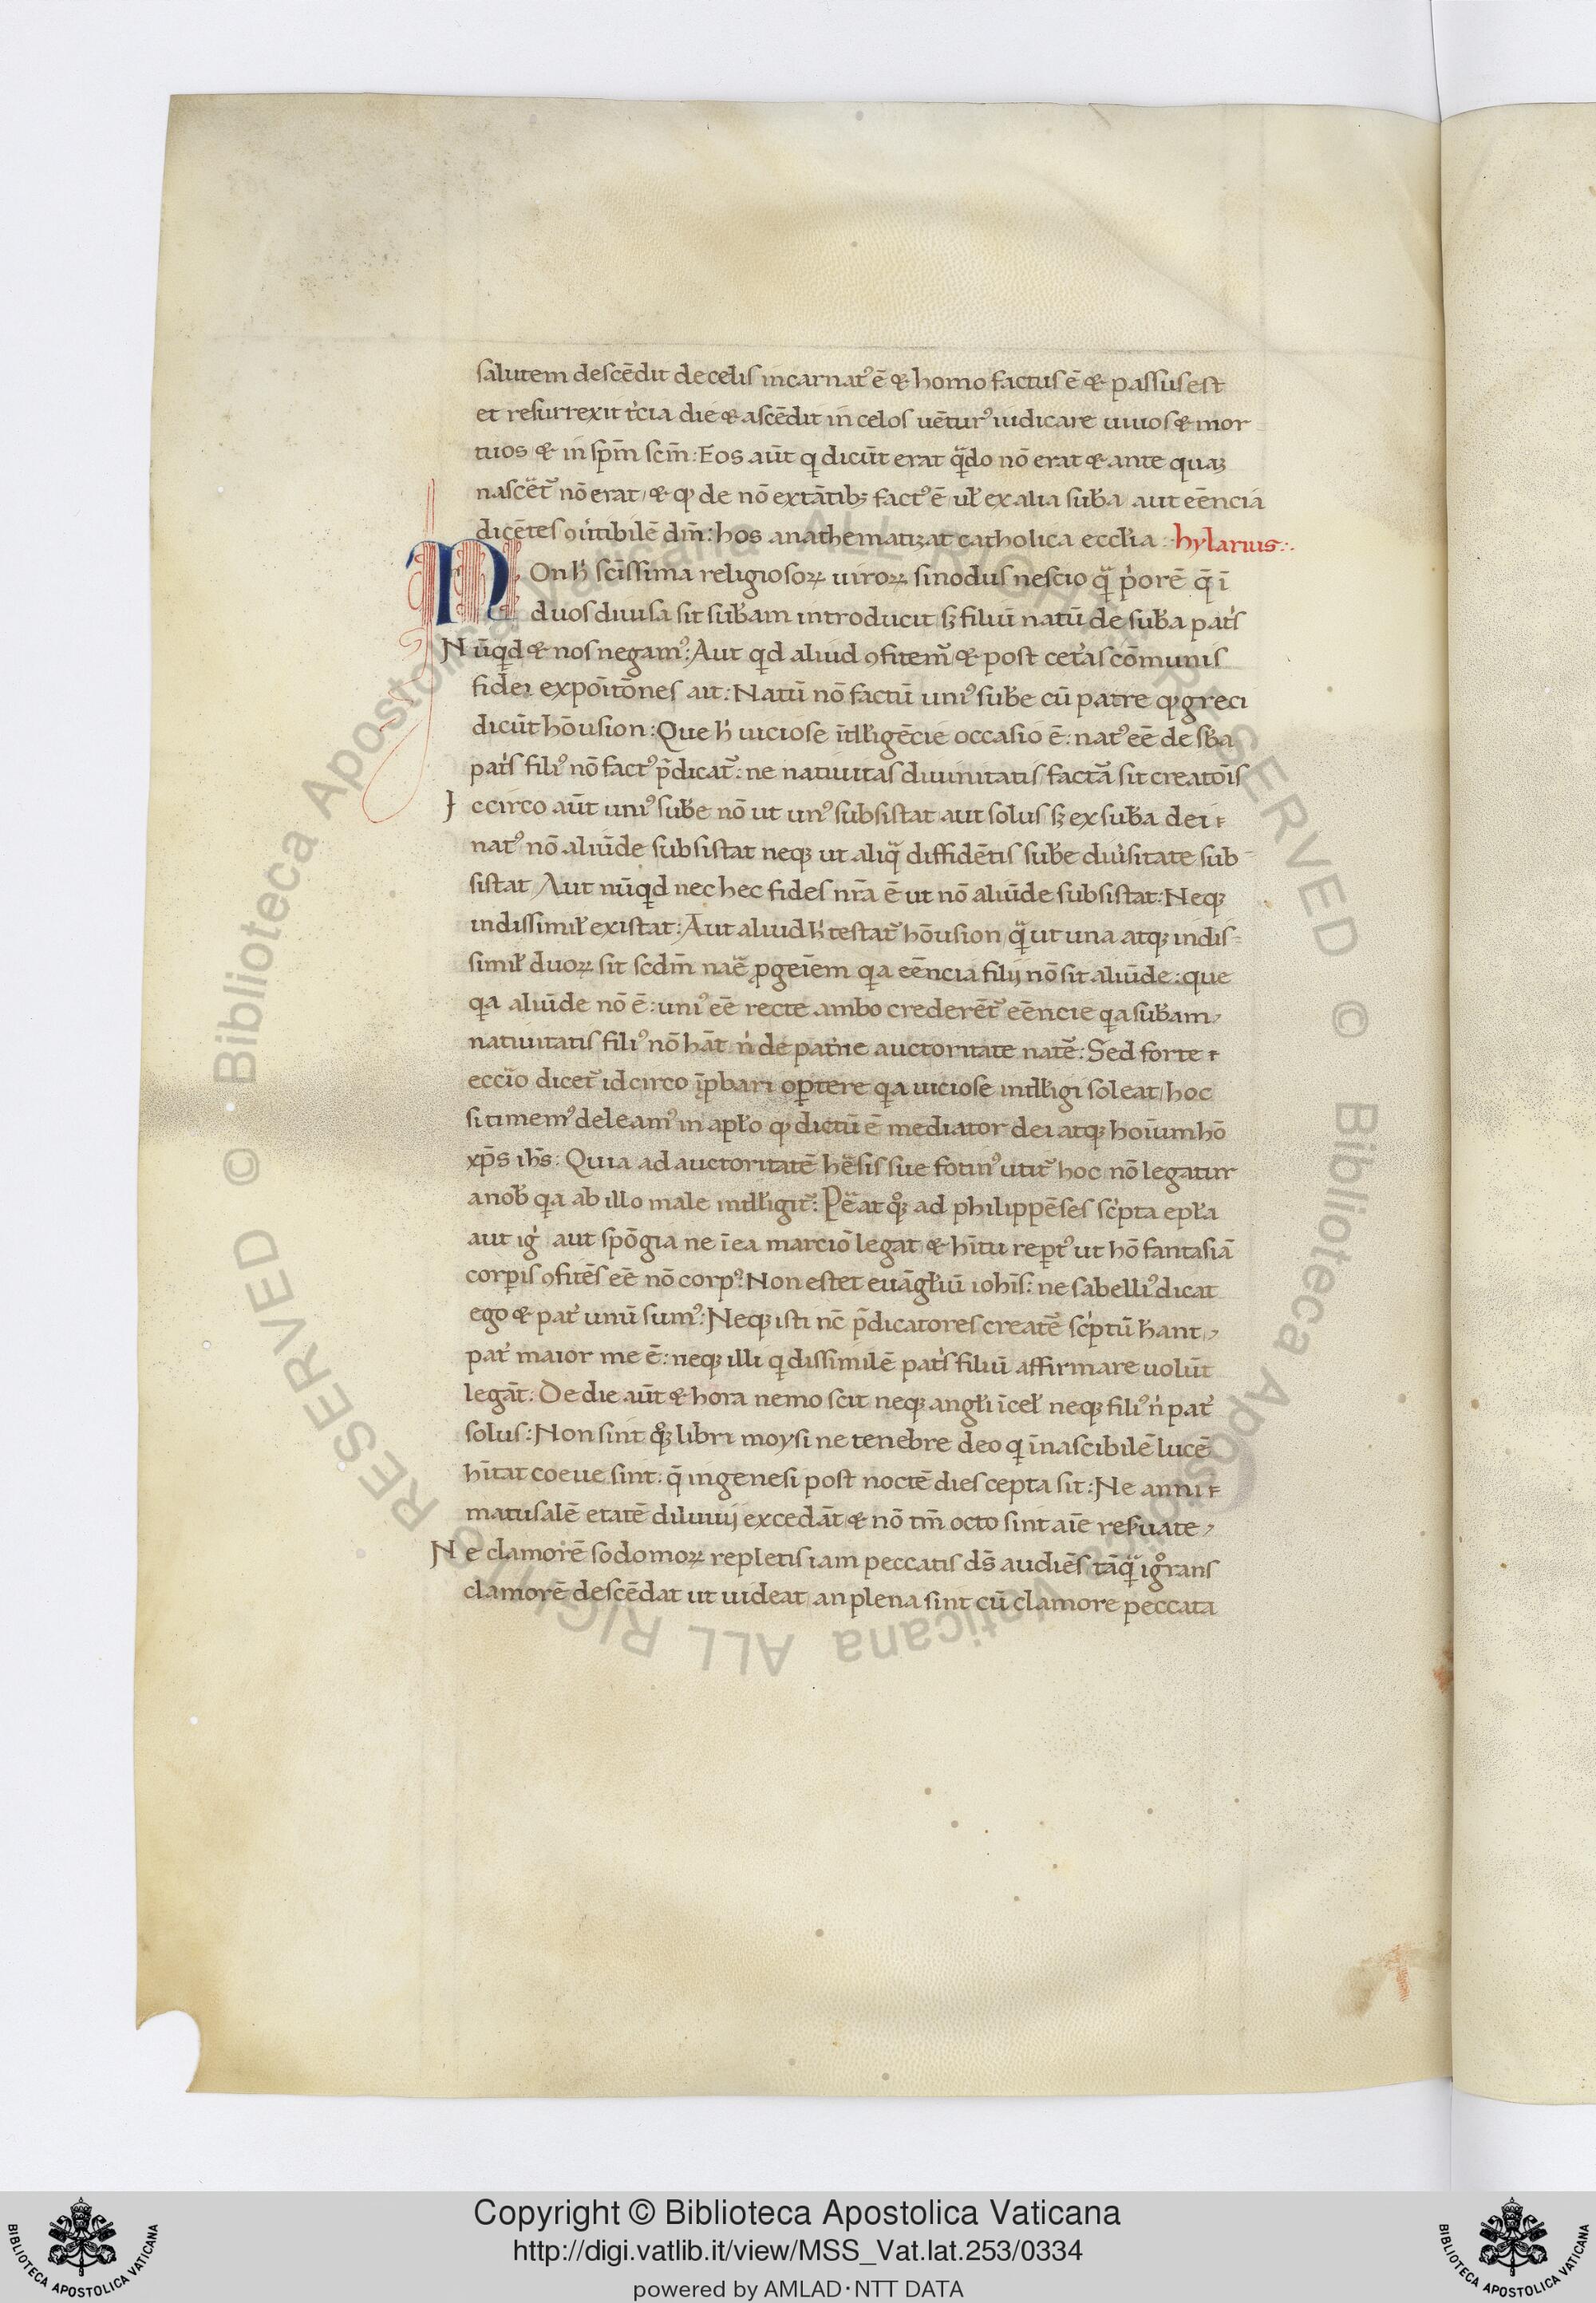 salutem descēdit de celis incarnatꝰ ē & homo factus ē & passus est
et resurrexit t'cia die & ascēdit in celos uētur' iudicare uiuos & mor
tuos & in sp̄m sc̄m: Eos aūt q dicūt erat qn̄do nō erat & ante quaꝫ
nascet' nō erat, & qꝫ de nō extātibꝫ factꝰ ē uł ex alia sub̄a aut eēncia
dicētes ꝯu'tibilē dm̄: hos anathematizat catholica eccl'ia: hylarius:.
NOn h' scīssima religiosoꝝ uiroꝝ sinodus nescio qͣ p'orē q̄ ī
duos diuisa sit sub̄am introducit sꝫ filiū natū de sub̄a pat's
Nūqd & nos negamꝰ: Aut qd aliud ꝯfitem' & post cet'as cōmunis
fidei expoītōnes ait: Natū nō factū uniꝰ sub̄e cū patre qꝫ greci
dicūt hōusion: Que h' uiciose ītll'igēcie occasio ē: natꝰ eē de sb̄a
pat's filiꝰ nō factꝰ p̄dicat': ne natiuitas diuinitatis fact̄a sit creatōis
Iccirco aūt uniꝰ sub̄e nō ut unꝰ subsistat aut solus sꝫ ex sub̄a dei
natꝰ nō aliūde subsistat neqꝫ ut aliqͣ diffidētis sub̄e diu'sitate sub
sistat Aut nūqd nec hec fides nr̄a ē ut nō aliūde subsistat: Neqꝫ
indissimił existat: Aut aliud h' testat' hōusion qͣ ut una atqꝫ indis
simił duoꝝ sit scd̄m nae ꝓgeīem qa eēncia filij nō sit aliūde: que
qa aliūde nō ē: uniꝰ eē recte ambo crederēt' eēncie qa sub̄am
natiuitatis filiꝰ nō hāt n' de pat'ne auctoritate natē: Sed forte
eccīo dicet' idcirco īp̄bari op̄tere qa uiciose intll'igi soleat, hoc
si timemꝰ deleamꝰ in apl'o qꝫ dictū ē mediator dei atqꝫ hoīum hō
xp̄s ih̄s: Quia ad auctoritatē hēsis sue fotinꝰ utit' hoc nō legatur
a nob̄ qa ab illo male intll'igit': Pēat qꝫ ad philippēses sc'pta epl'a
aut ig' aut spōgia ne ī ea marciō legat & hītu rep̄tꝰ ut hō fantasiā
corp̄is ꝯfitēs eē nō corpꝰ: Non estet euāgl'iū ioh̄is: ne sabelliꝰ dicat
ego & pat' unū sumꝰ: Neqꝫ isti nc̄ p̄dicatores creatē sc'ptū h̄ant
pat' maior me ē: neqꝫ illi q dissimilē pat's filiū affirmare uolūt
legāt: De die aūt & hora nemo scit neqꝫ angl'i ī cel' neqꝫ filiꝰ n' pat'
solus: Non sint qꝫ libri moysi ne tenebre deo q īnascibilē lucē
hītat coeue sint: q̄ in genesi post noctē dies cepta sit: Ne anni
matusalē etatē diluuij excedāt & nō tm̄ octo sint aīe res'uate
Ne clamorē sodomoꝝ repletis iam peccatis ds̄ audiēs tāqͣ ig̊rans
clamorē descēdat ut uideat an plena sint cū clamore peccata
© Biblioteca Apostolica Vaticana ALL RIGHTS RESERVED
Copyright © Biblioteca Apostolica Vaticana
http://digi.vatlib.it/view/MSS_Vat.lat.253/0334
powered by AMLAD·NTT DATA
BIBLIOTECA APOSTOLICA VATICANA
BIBLIOTECA APOSTOLICA VATICANA